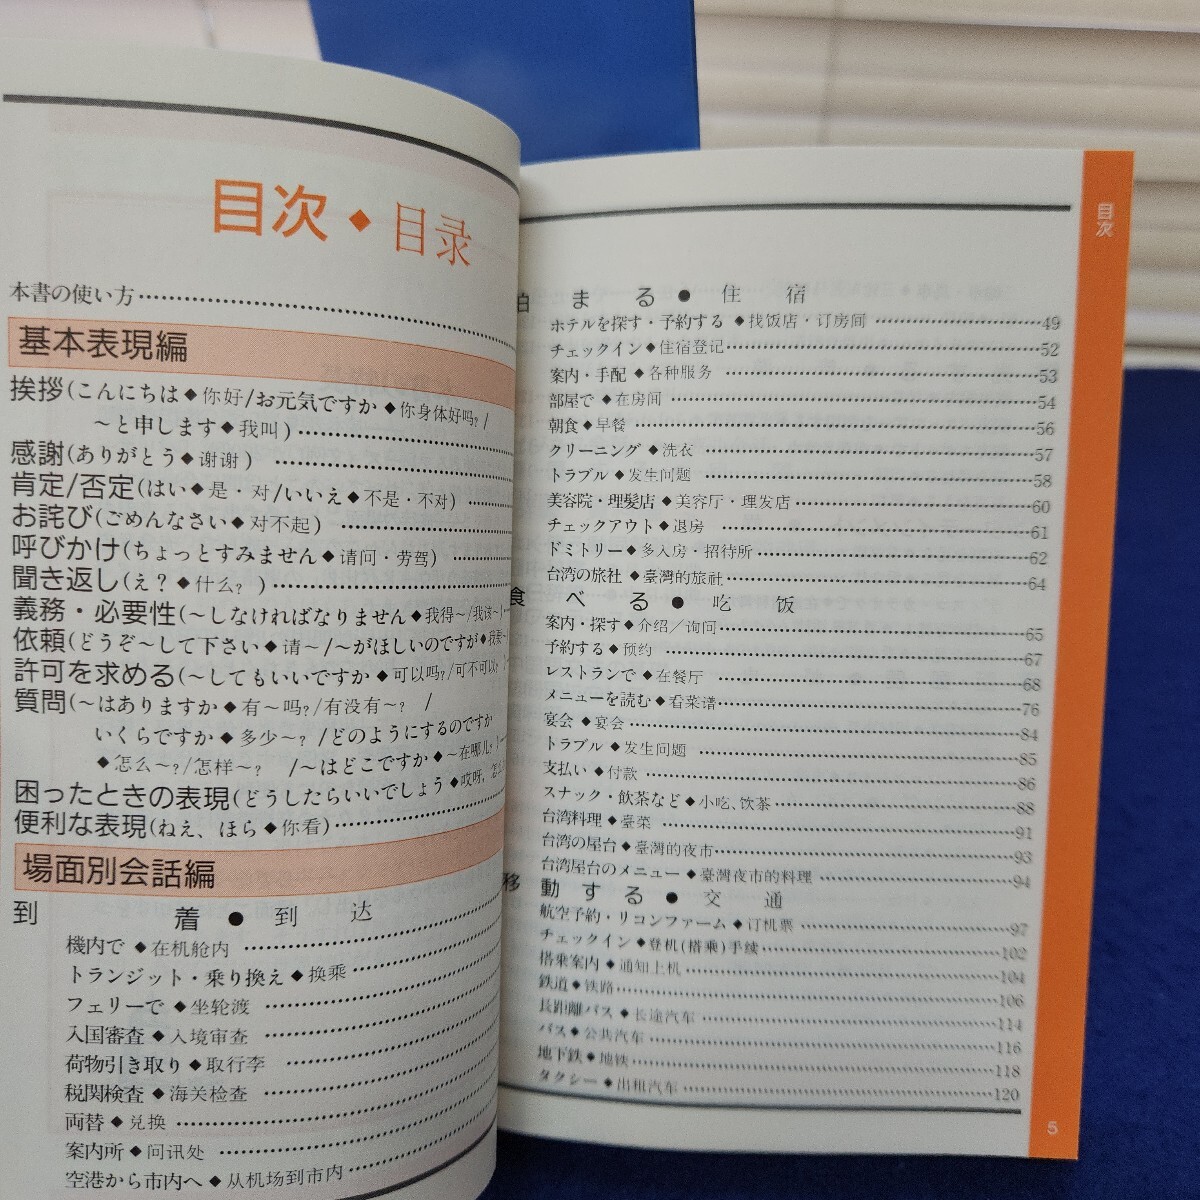 目次◆目录
本書の使い方
基本表現編
挨拶(こんにちは◆你好/お元気ですか◆你身体好吗?/
～と申します◆我叫)
感謝(ありがとう◆谢谢)
肯定/否定(はい◆是・对/いいえ◆不是・不对)
お詫び(ごめんなさい◆对不起)
呼びかけ(ちょっとすみません◆请问・劳驾)
聞き返し(え？◆什么?)
義務・必要性(～しなければなりません◆我得～/我该～)
依頼(どうぞ～して下さい◆请～/～がほしいのですが◆我要～
許可を求める(～してもいいですか◆可以吗?/可不可以?)
質問(～はありますか◆有～吗?/有没有～? /
いくらですか◆多少～? /どのようにするのですか
◆怎么～?/怎样～? /～はどこですか◆～在哪儿?)
困ったときの表現(どうしたらいいでしょう◆哎呀,怎么
便利な表現(ねえ、ほら◆你看)
場面別会話編
到着●到达
機内で◆在机舱内
トランジット・乗り換え◆换乘
フェリーで◆坐轮渡
入国審査◆入境审查
荷物引き取り◆取行李
税関検査◆海关检查
両替◆兑换
案内所◆问讯处
空港から市内へ◆从机场到市内
目次
泊まる●住宿
ホテルを探す・予約する◆找饭店・订房间 49
チェックイン◆住宿登记 52
案内・手配◆各种服务 53
部屋で◆在房间 54
朝食◆早餐 56
クリーニング◆洗衣 57
トラブル◆发生问题 58
美容院・理髪店◆美容厅・理发店 60
チェックアウト◆退房 61
ドミトリー◆多人房・招待所 62
台湾の旅社◆臺灣的旅社 64
食べる●吃饭
案内・探す◆介绍／询问 65
予約する◆预约 67
レストランで◆在餐厅 68
メニューを読む◆看菜谱 76
宴会◆宴会 84
トラブル◆发生问题 85
支払い◆付款 86
スナック・飲茶など◆小吃、饮茶 88
台湾料理◆臺菜 91
台湾の屋台◆臺灣的夜市 93
台湾屋台のメニュー◆臺灣夜市的料理 94
移動する●交通
航空予約・リコンファーム◆订机票 97
チェックイン◆登机(搭乘)手续 102
搭乗案内◆通知上机 104
鉄道◆铁路 106
長距離バス◆长途汽车 114
バス◆公共汽车 116
地下鉄◆地铁 118
タクシー◆出租汽车 120
5